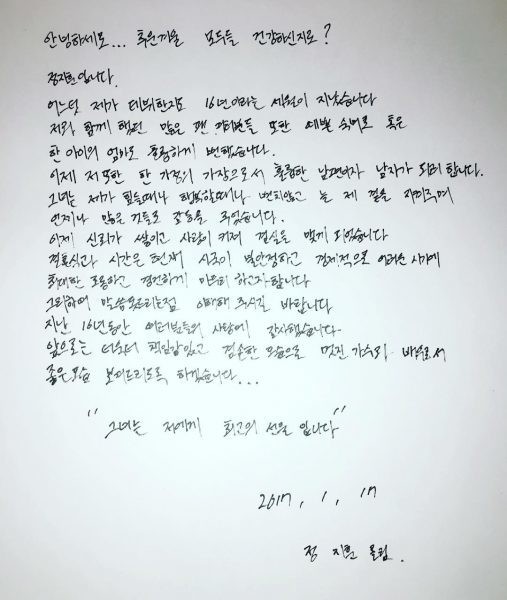 안녕하세요... 추운겨울 모두들 건강하신지요?
정지훈입니다.
어느덧 제가 데뷔한지도 16년이라는 세월이 지났습니다
저와 함께 했던 많은 팬 여러분들 또한 예쁜 숙녀로 혹은
한 아이의 엄마로 훌륭하게 변했습니다.
이제 저 또한 한 가정의 가장으로서 훌륭한 남편이자 남자가 되려 합니다.
그녀는 제가 힘들때나 행복할때나 변치않고 늘 제 곁을 지켜주며
언제나 많은 것들로 감동을 주었습니다.
이제 신뢰가 쌓이고 사랑이 커져 결실을 맺게 되었습니다
결혼식과 시간은 현재 시국이 불안정하고 경제적으로 어려운 시기에
최대한 조용하고 경건하게 치르려 하고자 합니다
그리하여 말씀 못드리는점 이해해 주시길 바랍니다
지난 16년동안 여러분들의 사랑에 감사했습니다
앞으로는 더욱더 책임감있고 겸손한 모습으로 멋진 가수와 배우로서
좋은모습 보여드리도록 하겠습니다...
"그녀는 저에게 최고의 선물 입니다"
2017. 1. 17
정 지훈 올림.